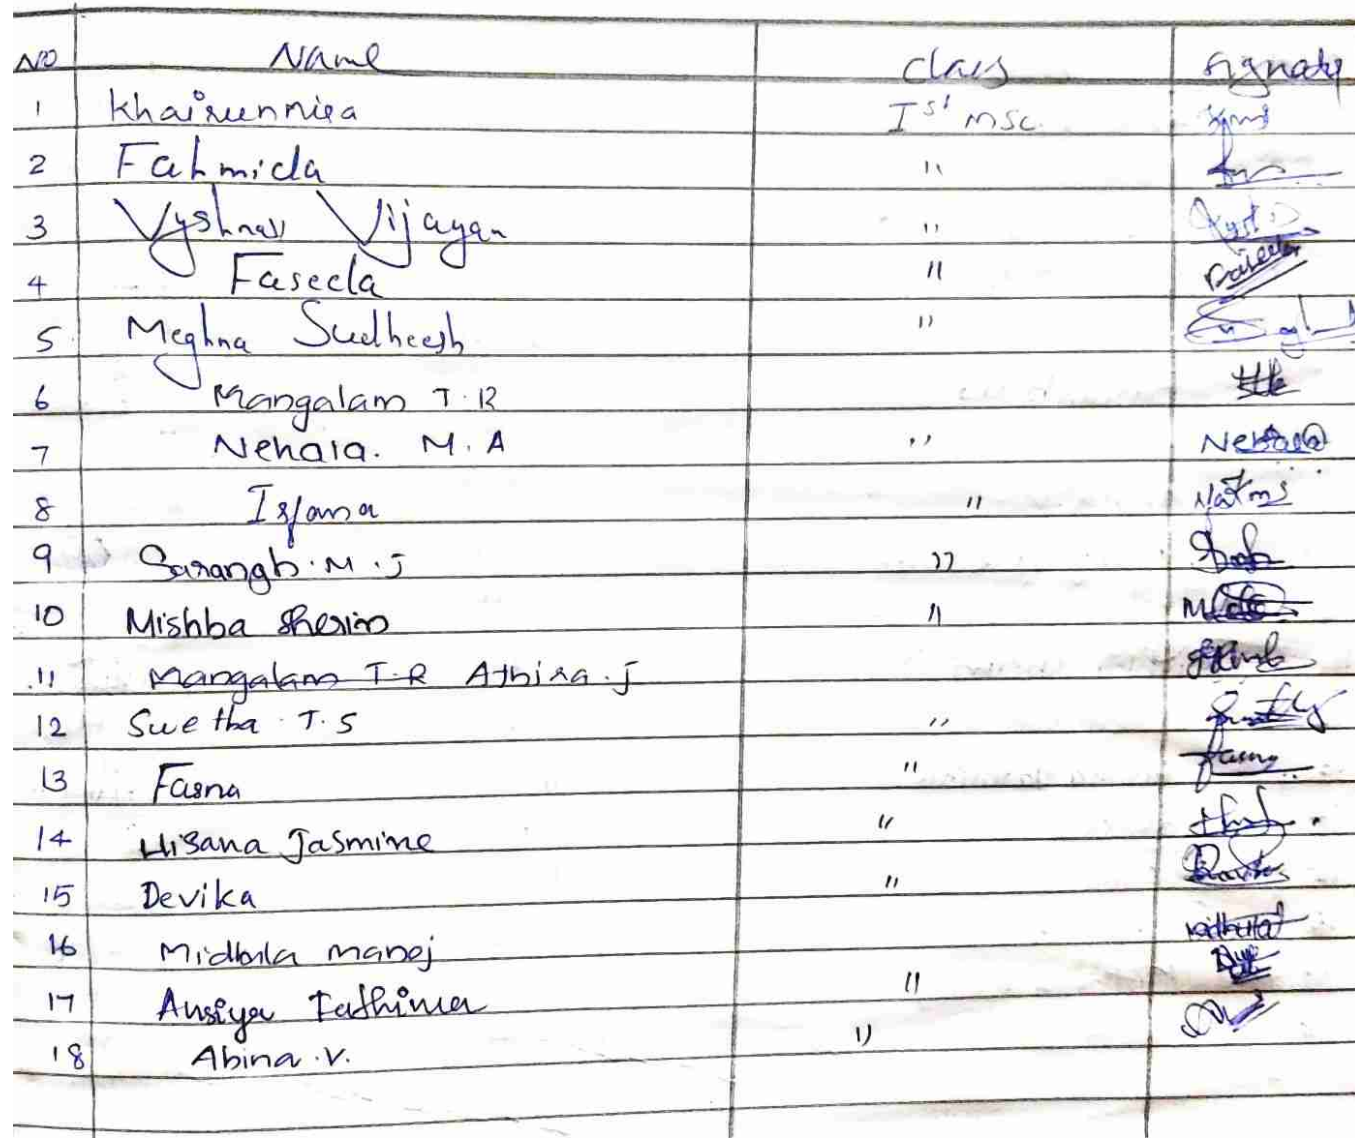 NO Name class signatu
1 Khairunnisa Ist msc.
2 Fahmida "
3 Vyshnav Vijayan "
4 Faseela "
5 Meghna Sudheesh "
6 Mangalam T.R
7 Nehala. M.A " Nehala
8 Isfana "
9 Sarangh.M.J "
10 Mishba Sherin "
11 Mangalam T.R Athira.J
12 Swetha T.S "
13 Fasna "
14 Hisana Jasmine "
15 Devika "
16 Midhila manoj
17 Ansiya Fathima "
18 Abina.V. "